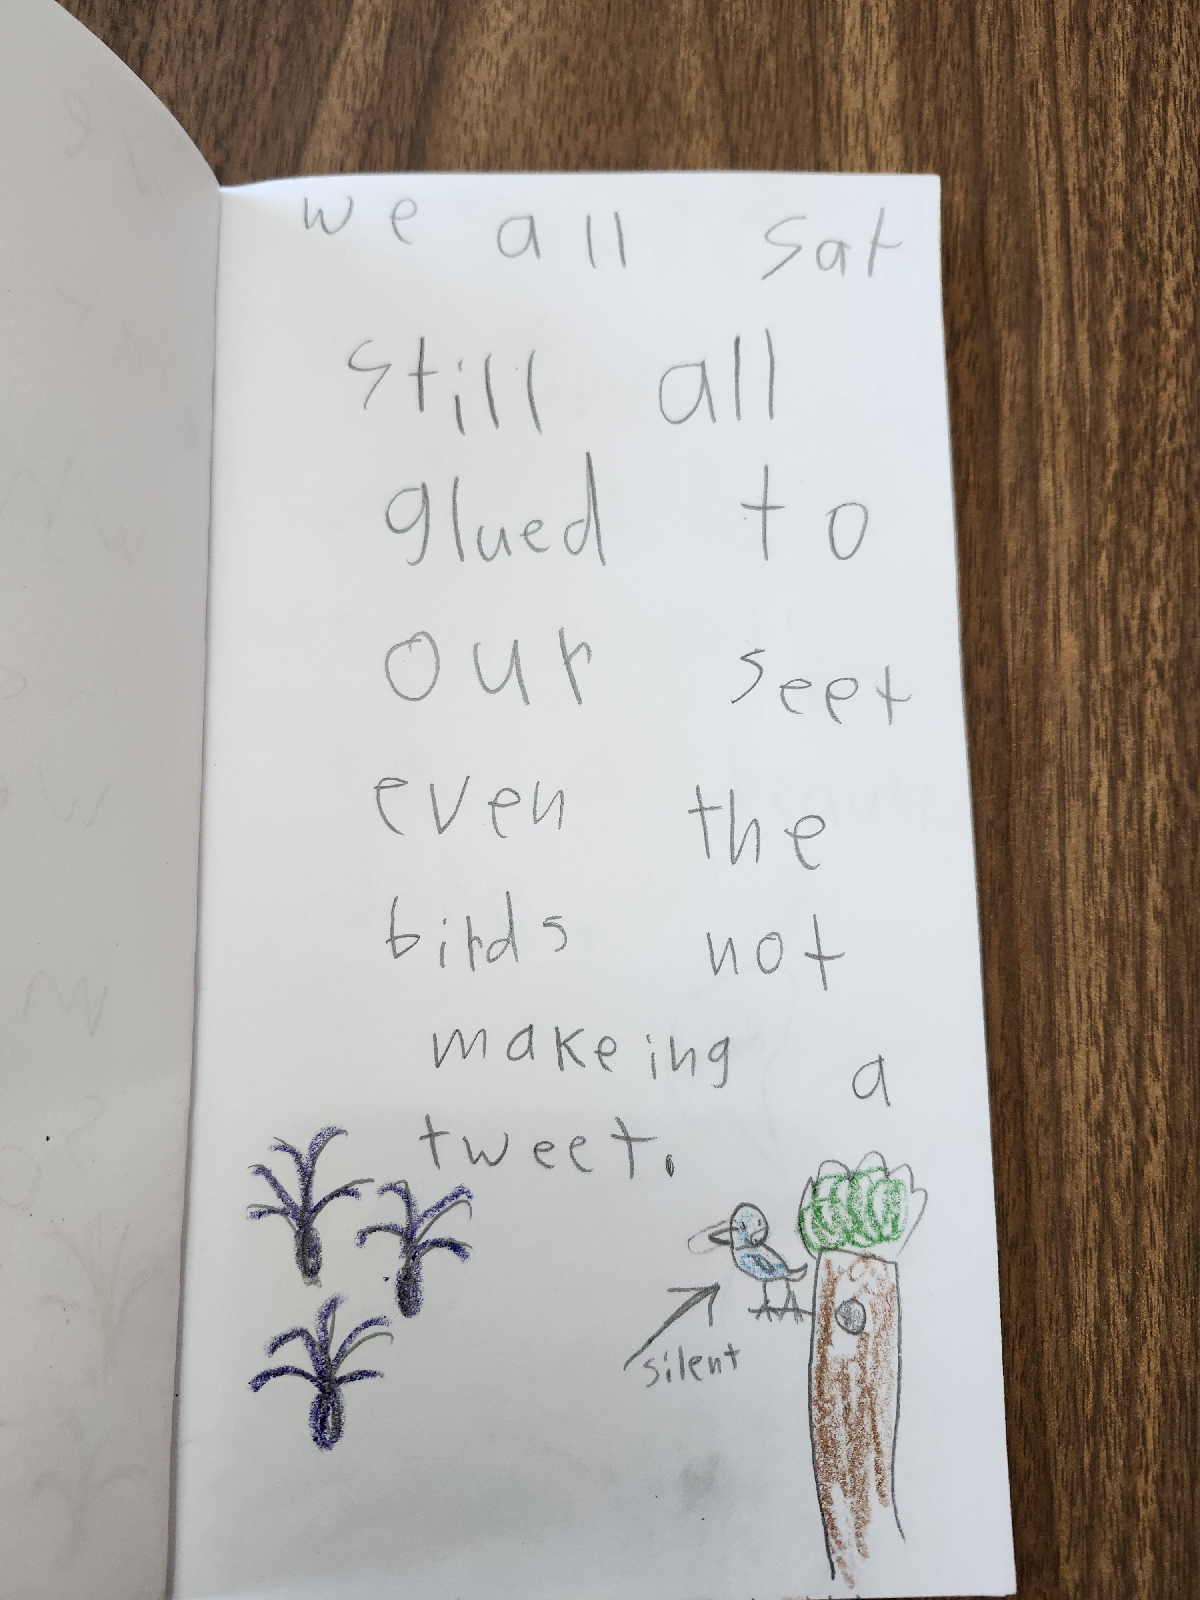 we all sat
still all
glued to
our seet
even the
birds not
makeing a
tweet.
silent